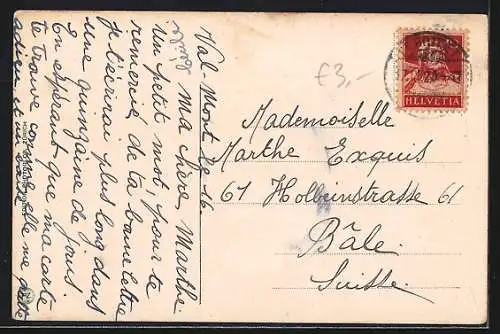 Val-Mont le 16.
ma chère Marthe.
un petit mot, pour te
remercié de ta bonne lettre
je t'écrirai plus long dans
une quinzaine de jours
En espérant que ma carte
te trouve comme elle me
adieu
Mademoiselle
Marthe Exquis
61 Holbeinstrasse 61
Bâle
Suisse.
£3,-
HELVETIA